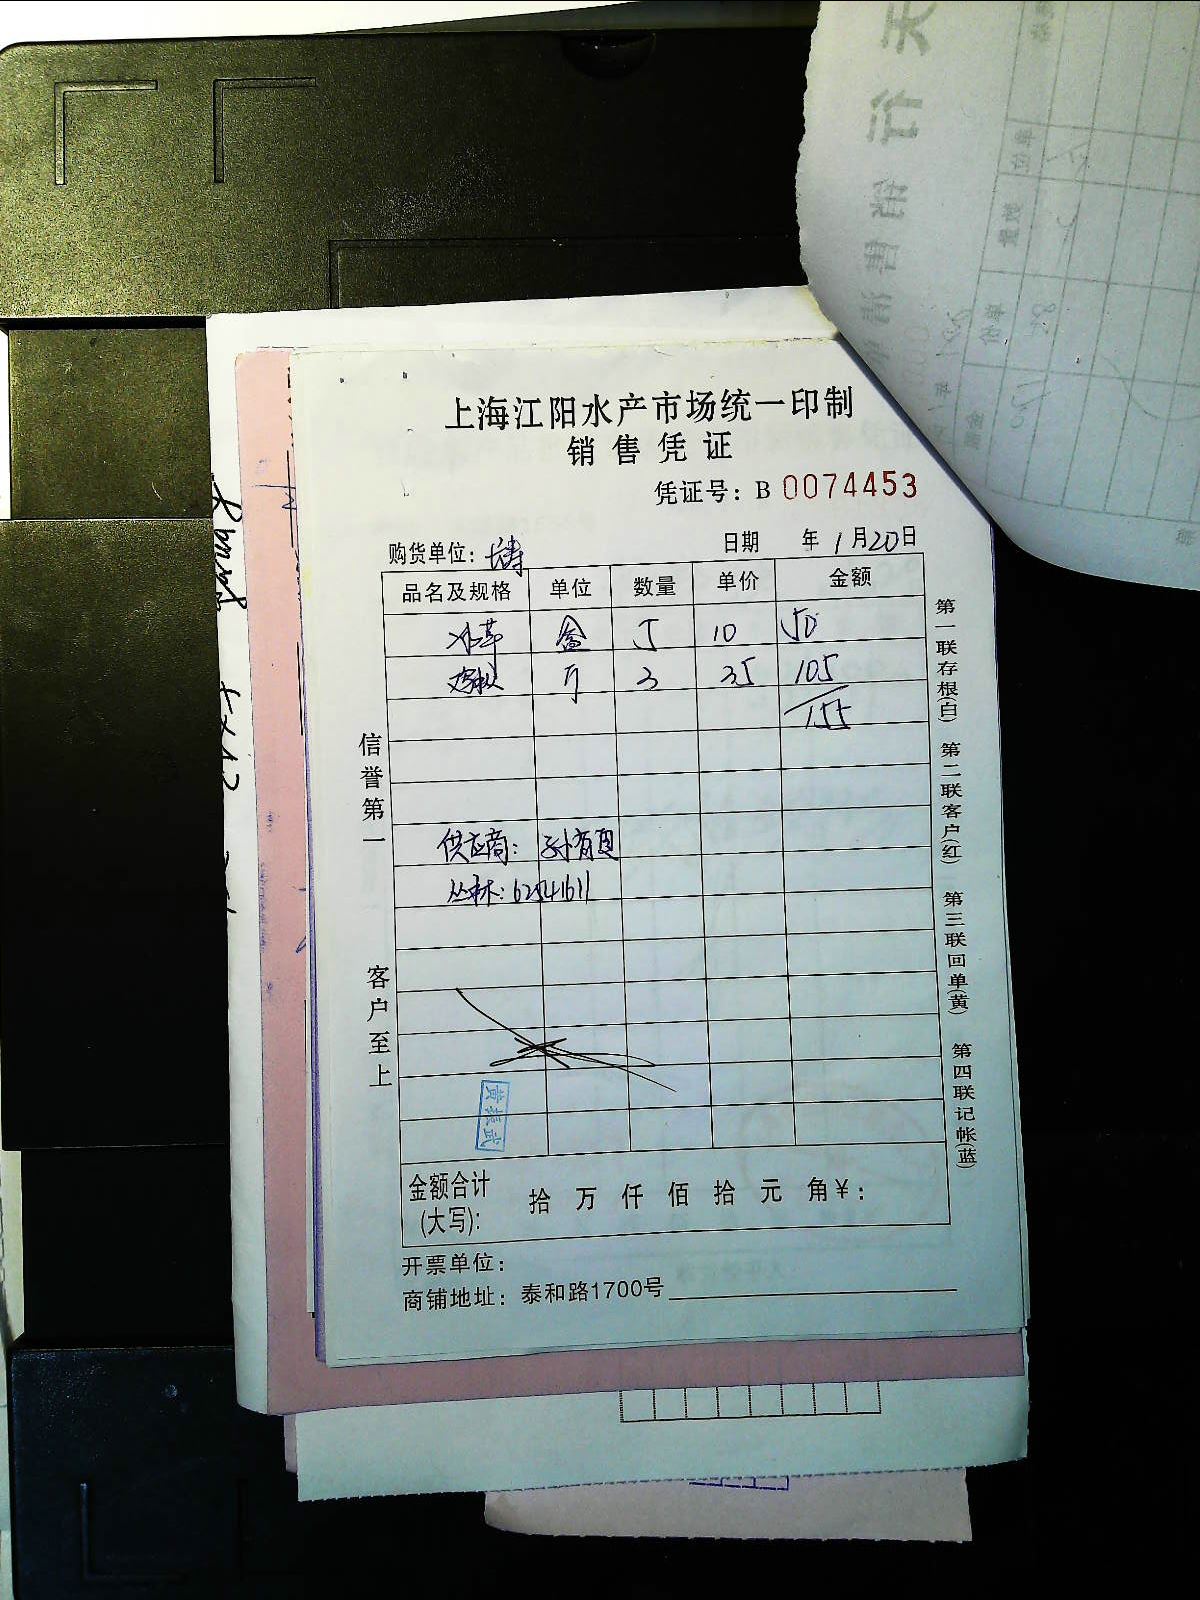 上海江阳水产市场统一印制
销售凭证
凭证号：B 0074453
购货单位：长寿
日期 年 1 月 20 日
品名及规格 单位 数量 单价 金额
冰草 盒 5 10 50
斤 3 35 105
155
供应商：孙有
丛林：62541611
信誉第一
客户至上
第一联存根(白) 第二联客户(红) 第三联回单(黄) 第四联记帐(蓝)
金额合计(大写)： 拾 万 仟 佰 拾 元 角 ¥：
开票单位：
商铺地址：泰和路1700号